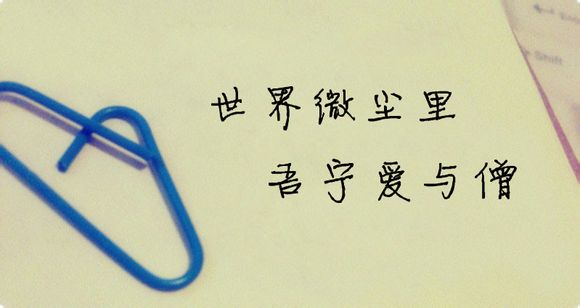 世界微尘里
吾宁爱与僧